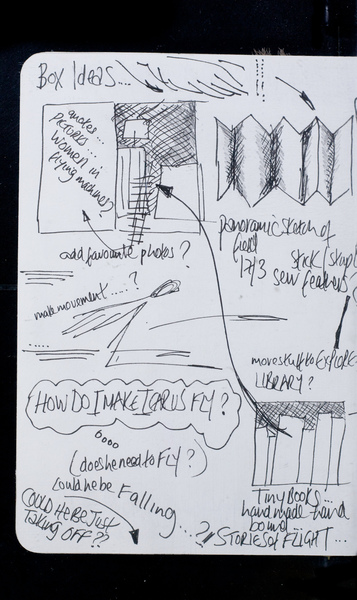 Box Ideas...
quotes...
Pictures..
Women in
flying machines?
add favourite photos?
panoramic sketch of
stick/
sew feathers?
make movement.....?
move stuff to EXPLORE
LIBRARY?
HOW DO I MAKE ICARUS FLY?
(does he need to FLY?)
Could he be Falling...?
COULD HE BE Just
Taking OFF??
Tiny Books...
handmade hand
bound
STORIES of FLIGHT...